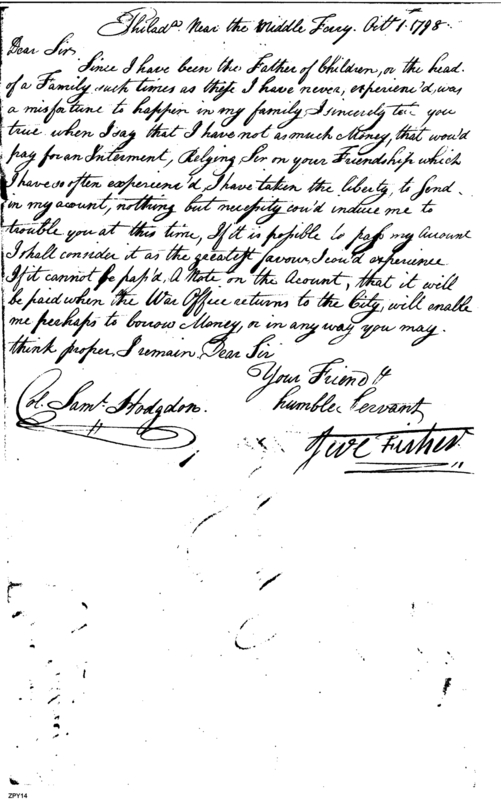 Philada. Near the Middle Ferry. Octr. 1. 1798
Dear Sir
Since I have been the Father of Children, or the head
of a Family such times as these I have never, experienc'd, was
a misfortune to happen in my family I sincerely tell you
true when I say that I have not as much Money, that wou'd
pay for an Interment, Relying Sir on your Friendship which
I have so often experienc'd, I have taken the liberty, to send
in my acount, nothing but necessity cou'd induce me to
trouble you at this time, If it is possible to pass my Acount
I shall consider it as the greatest favour, I cou'd experience
If it cannot be pass'd, A Note on the Acount, that it will
be paid when the War Office returns to the City, will enable
me perhaps to borrow Money, or in any way you may
think proper, I remain Dear Sir
Your Friend &
humble Servant
Col. Saml. Hodgdon.
Fisher
ZPY14